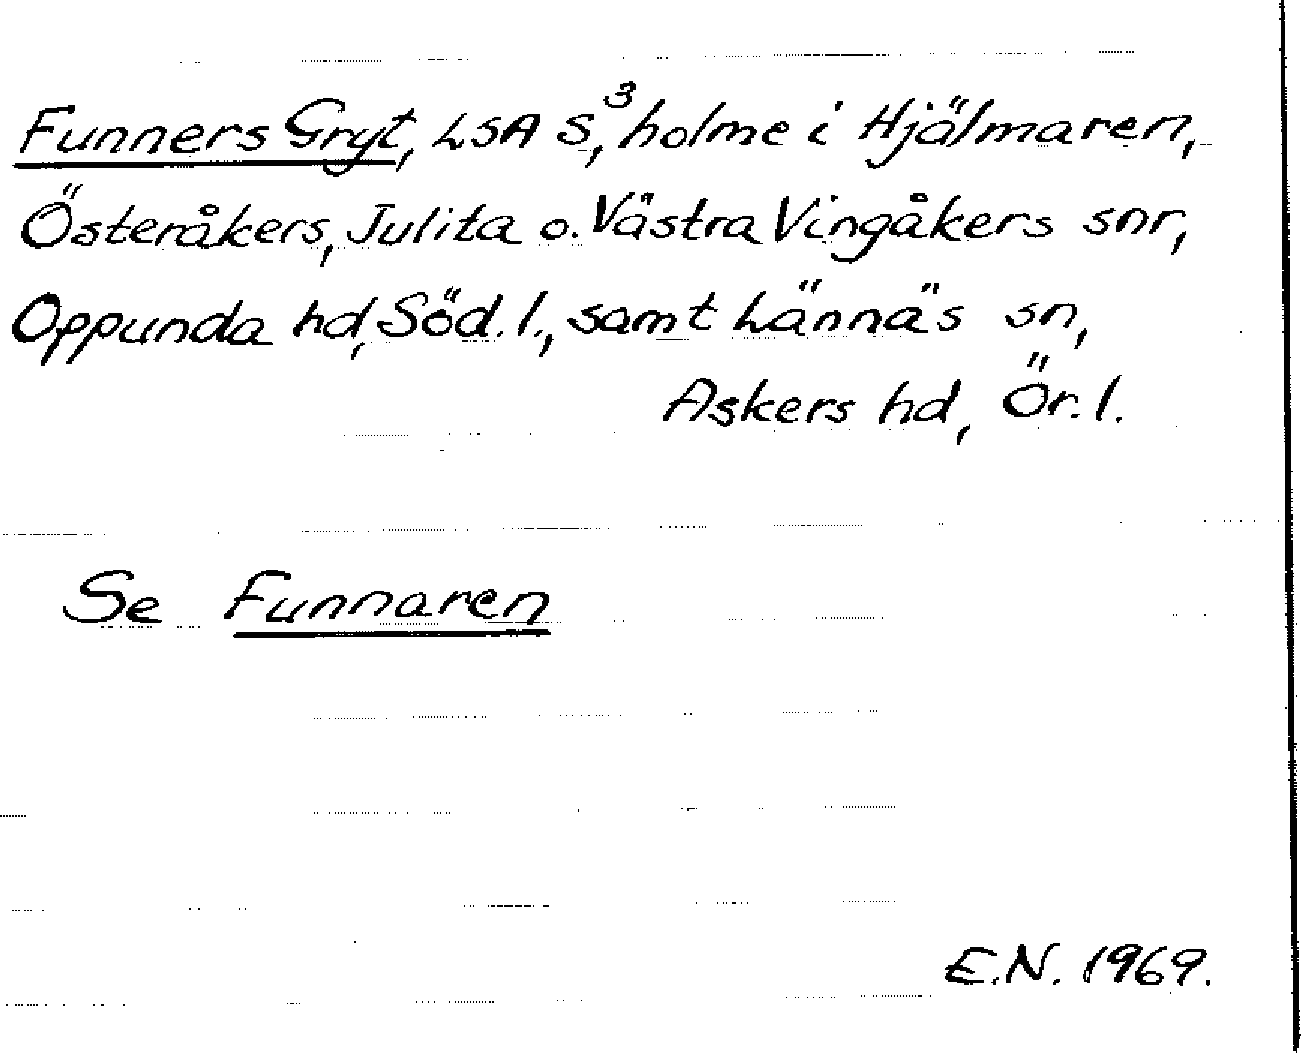 Funners Gryt, LSA S,³ holme i Hjälmaren,
Österåkers, Julita o. Västra Vingåkers snr,
Oppunda hd, Söd. l., samt Lännäs sn,
Askers hd, Ör. l.
Se Funnaren
E.N. 1969.